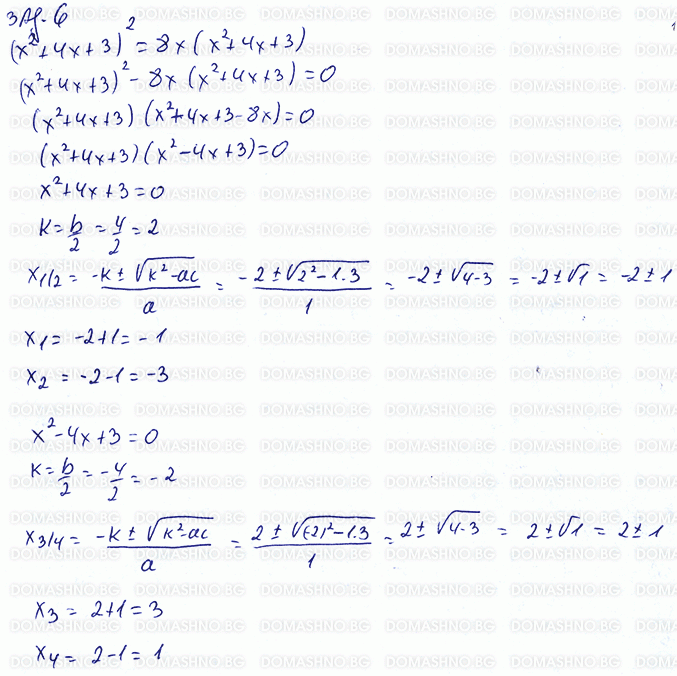 Зад. 6
(x²+4x+3)² = 8x (x²+4x+3)
(x²+4x+3)² - 8x (x²+4x+3) = 0
(x²+4x+3) (x²+4x+3-8x) = 0
(x²+4x+3) (x²-4x+3) = 0
x²+4x+3 = 0
k = b/2 = 4/2 = 2
x1/2 = (-k ± √(k²-ac))/a = (-2 ± √(2²-1.3))/1 = -2 ± √(4-3) = -2 ± √1 = -2 ± 1
x1 = -2+1 = -1
x2 = -2-1 = -3
x²-4x+3 = 0
k = b/2 = -4/2 = -2
x3/4 = (-k ± √(k²-ac))/a = (2 ± √((-2)²-1.3))/1 = 2 ± √(4-3) = 2 ± √1 = 2 ± 1
x3 = 2+1 = 3
x4 = 2-1 = 1
DOMASHNO.BG